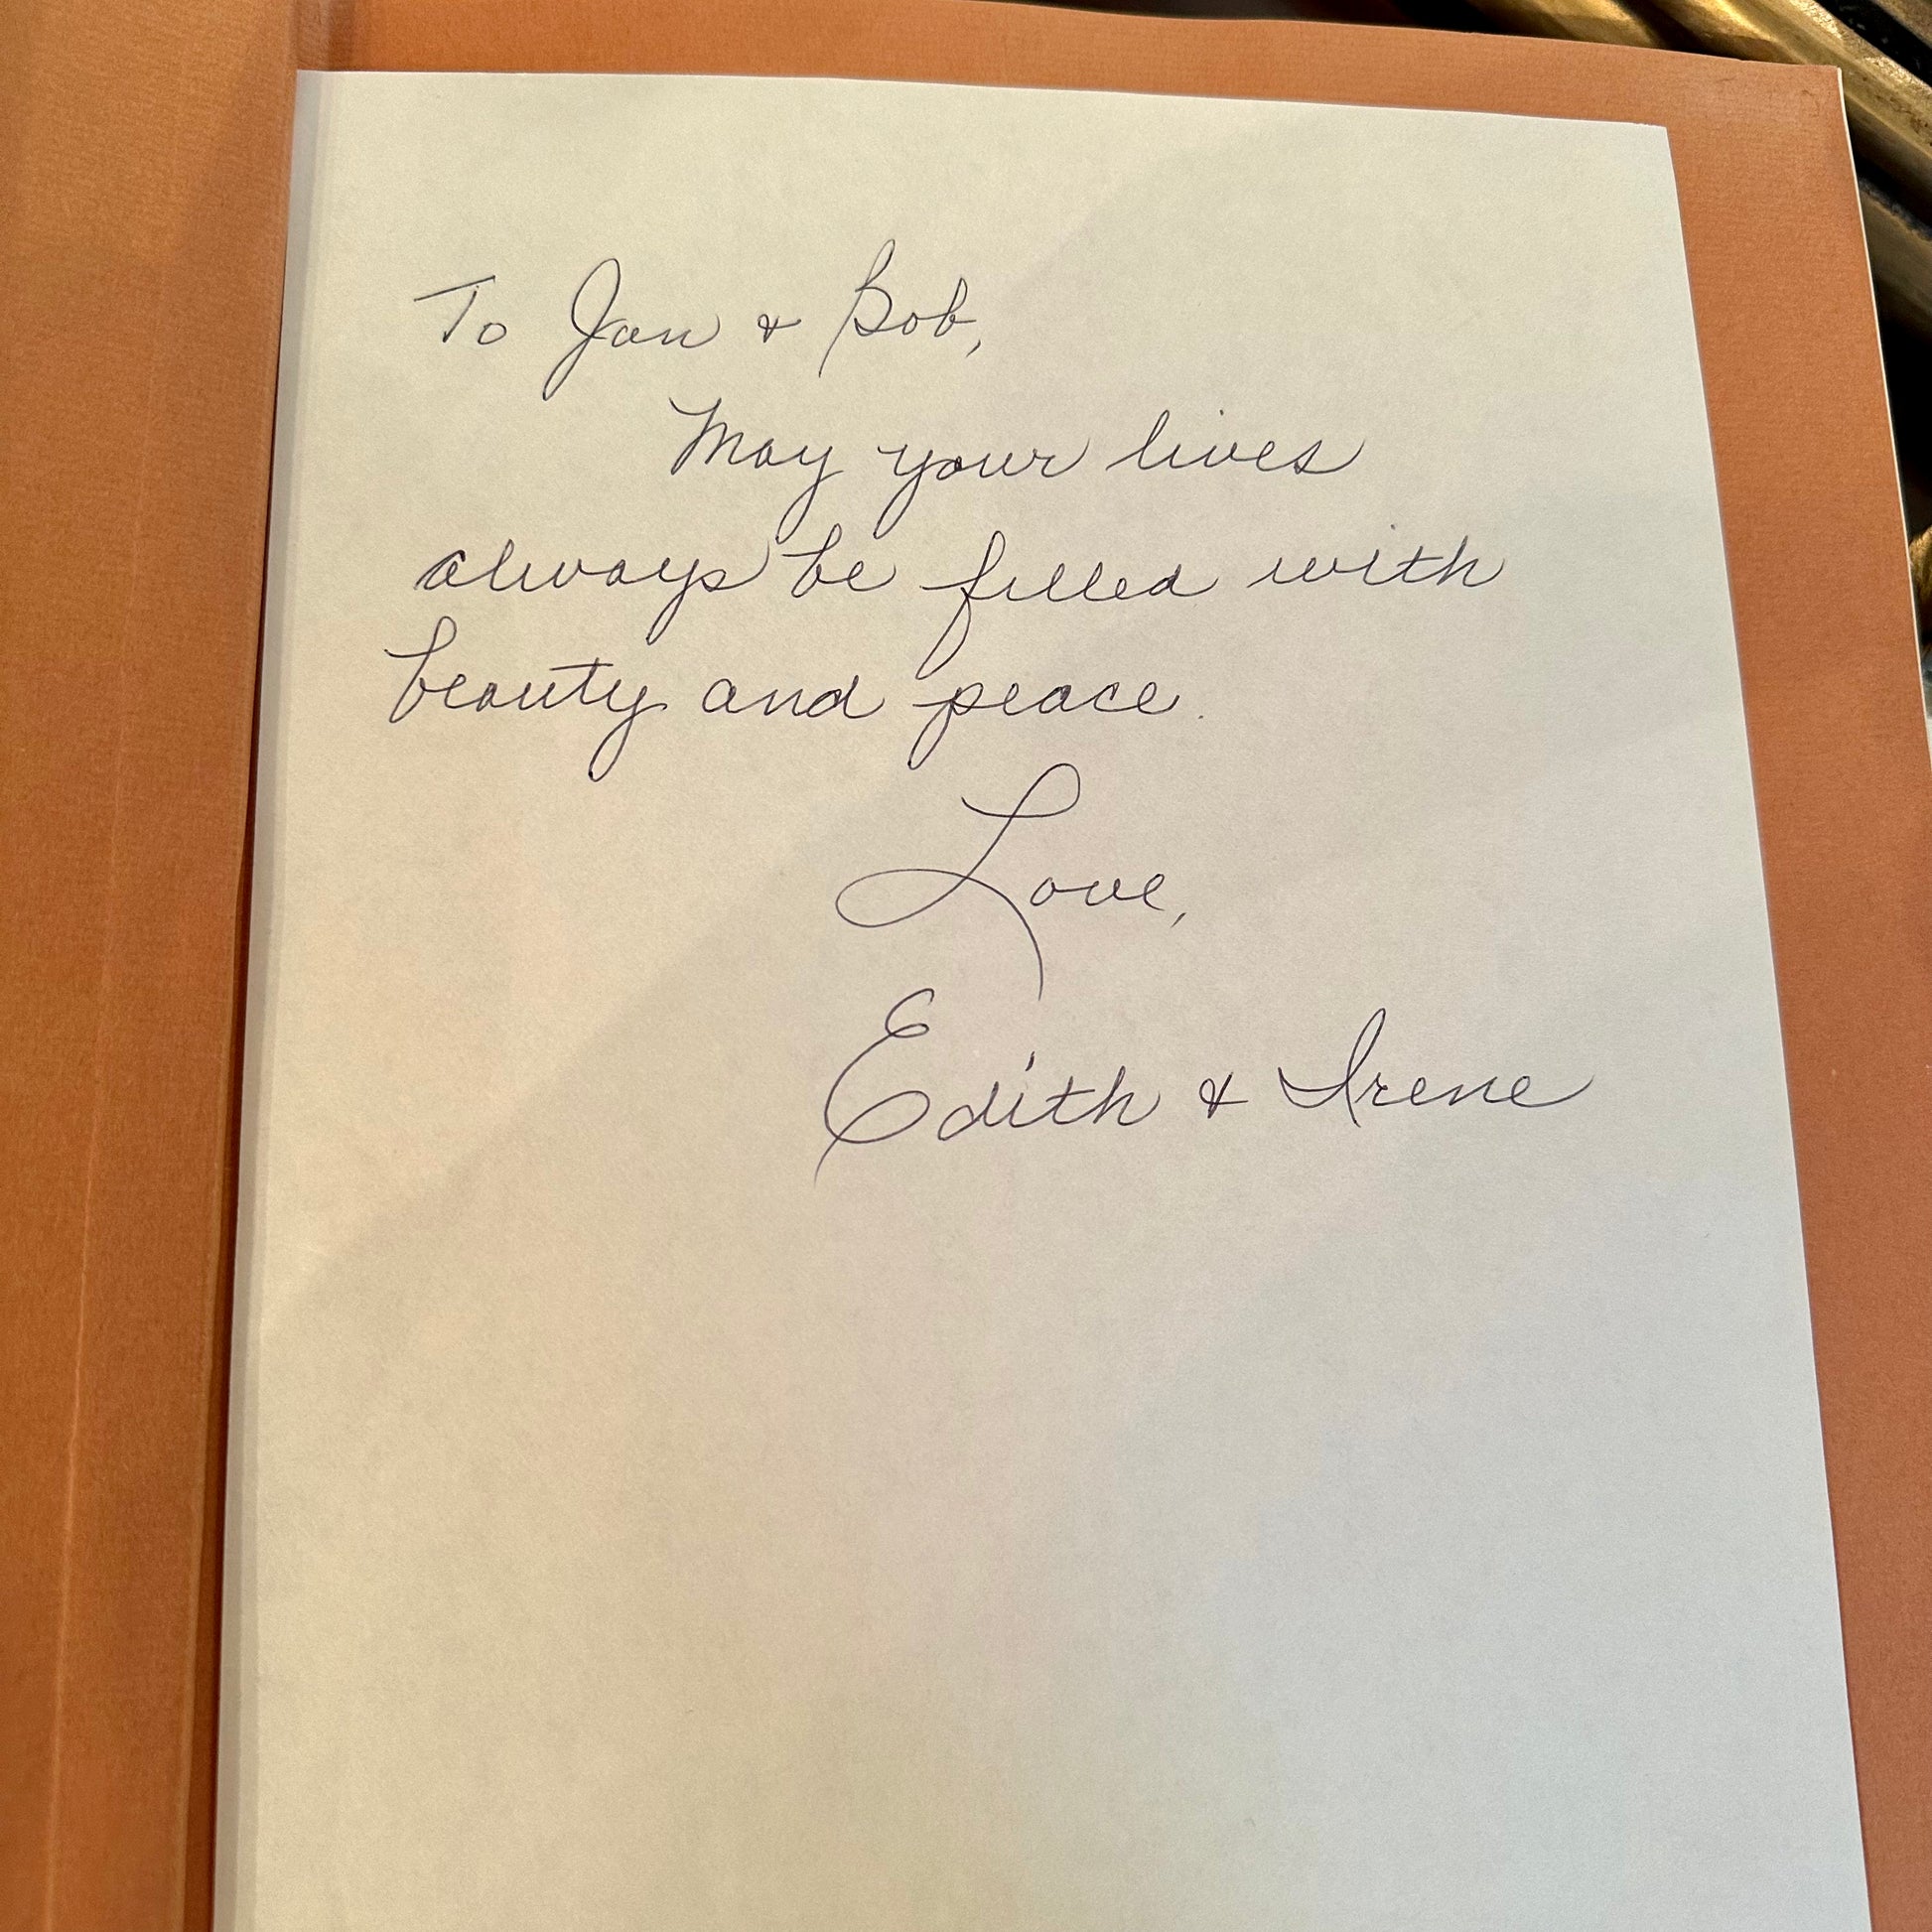 To Jan & Bob,
May your lives
always be filled with
beauty and peace.
Love,
Edith & Irene